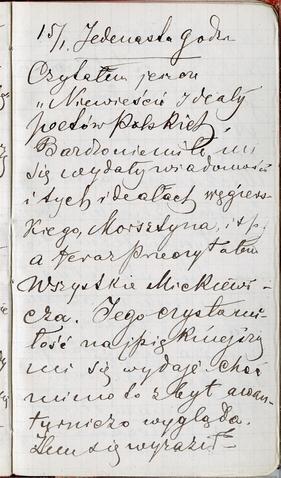 15/1. Jedenasta godz.
Czytałem
„Niewieście Ideały
poetów Polskich”
Bardzo mi
się wydały wiadomości
i tych ideałach węgiers-
kiego, Morsztyna, i t p.
a teraz przeczytałem
Wszystkie Mickiewi-
cza. Jego czysta mi-
łość najpiękniejszą
mi się wydaje choć
mimo to zbyt awan-
turniczo wygląda.
Złem się wyraził